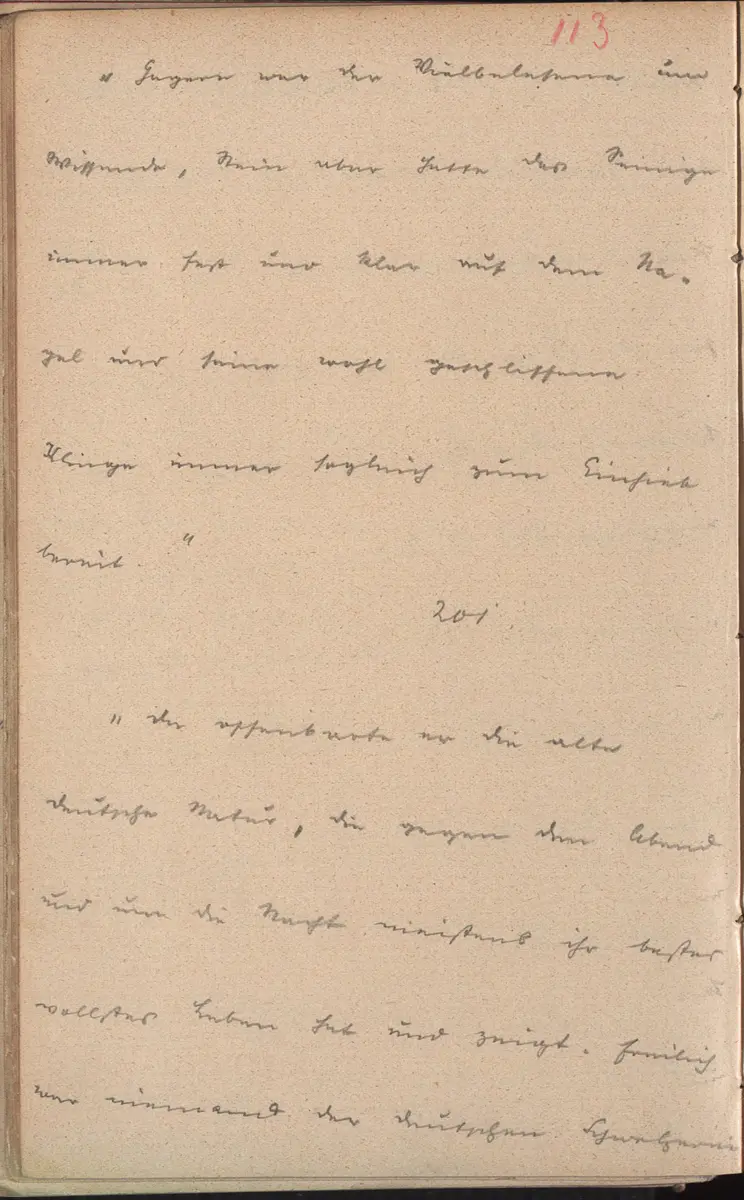 113
„ Gagern war der Vielbelesene und
Wissende, Stein aber hatte das Seinige
immer fest und klar auf dem Na-
gel und seine wohl geschliffene
Klinge immer sogleich zum Einhieb
bereit. “
201.
„ da offenbarte er die alte
deutsche Natur, die gegen den Abend
und um die Nacht meistens ihr bestes
vollstes Leben hat und zeigt. Freilich
war niemand der deutschen